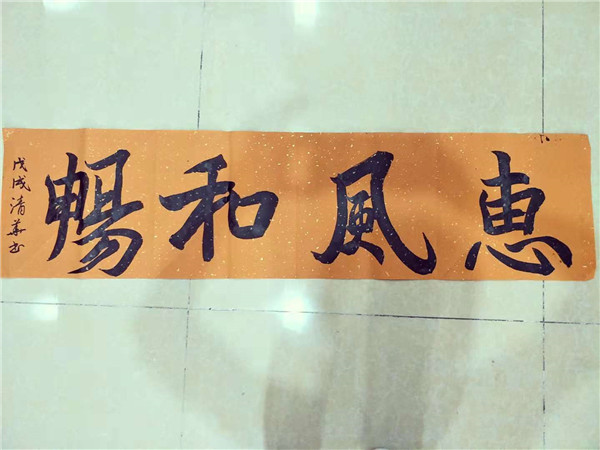 惠風和暢
戊戌清華书